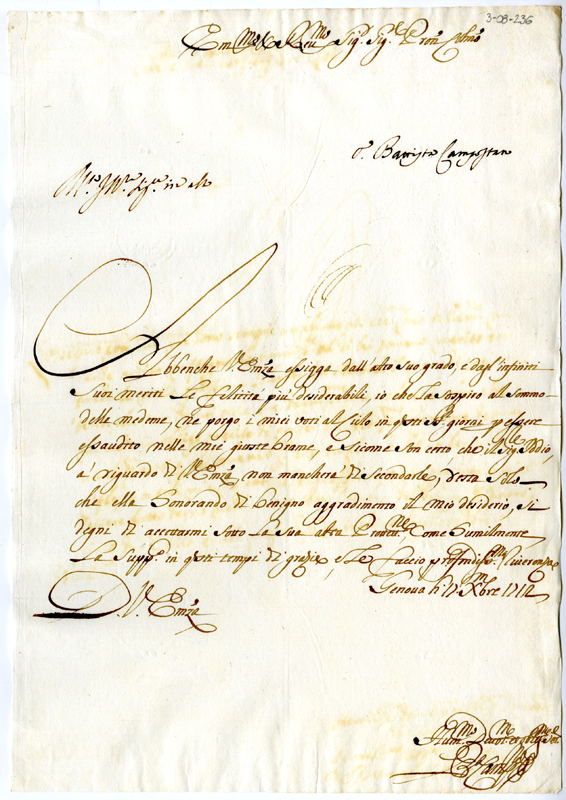 3-08-236
Em.mo e Reu.mo Sig.r Sig.r e Pron. Colmo
Battista
Abbenche V. Emza essigga dall'alto suo grado, e dagl'infiniti
suoi meriti le felicità più desiderabili, io che la sospiro al sommo
delle medeme, ne porgo i miei voti al Cielo in q.sti S.ti giorni p essere
essaudito nelle mie giuste brame, e sicome son certo che il Sig.re Iddio,
a riguardo di V. Emza, non mancherà di secondarle, resta solo
che ella honorando di benigno aggradimento il mio desiderio, si
degni di accettarmi sotto la sua alta Protett.ne come humilmente
la supp.o in q.sti tempi di grazie, e le faccio profondiss.ma riuerenza
Genova li Xbre 1712
D. V. Emza
Hum.mo Deuot.mo